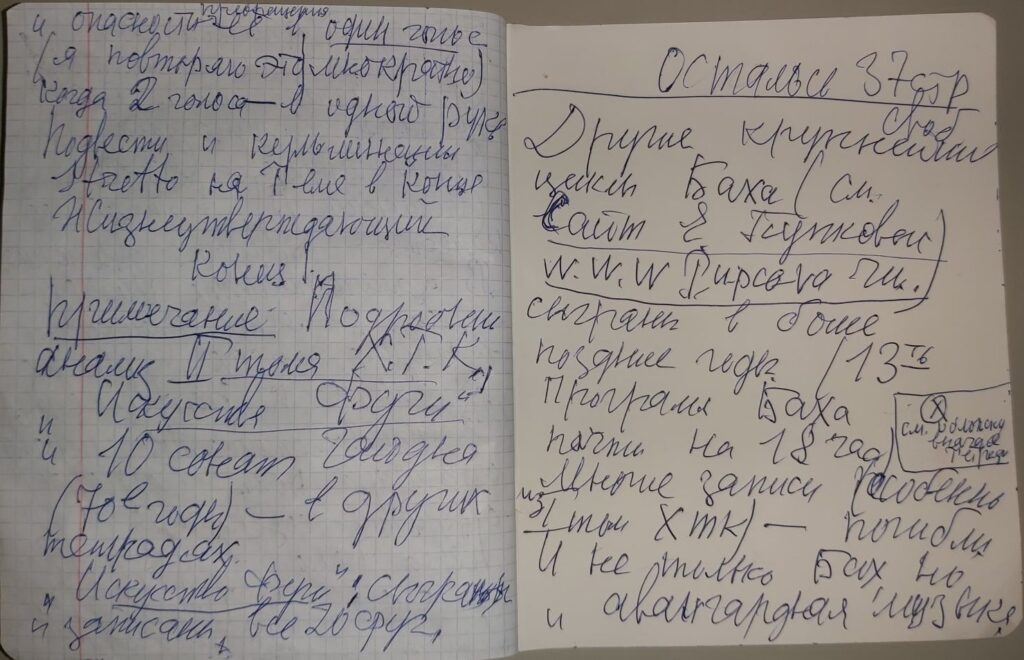 и опасности её превращения в один голос
(я повторяю это многократно)
Когда 2 голоса — в одной руке
Подвести и кульминации
Stretto на Теме в конце
Жизнеутверждающий
конец!
Примечание: Подробный
анализ II тома Х.Т.К.,
"Искусства Фуги"
и 10 сонат Гайдна
(70е годы) — в других
тетрадях.
"Искусство Фуги": сыграны
и записаны все 20 фуг.
Осталось 37 стр
своб
Другие крупнейшие
циклы Баха (см.
Сайт Е
W.W.W
сыграны в более
поздние годы. (13ть
Программ Баха
почти на 18 час)
см. обложку
вначале
тетради
Многие записи (особенно
из II том ХТК) — погибли
И не только Бах но
и авангардная музыка,